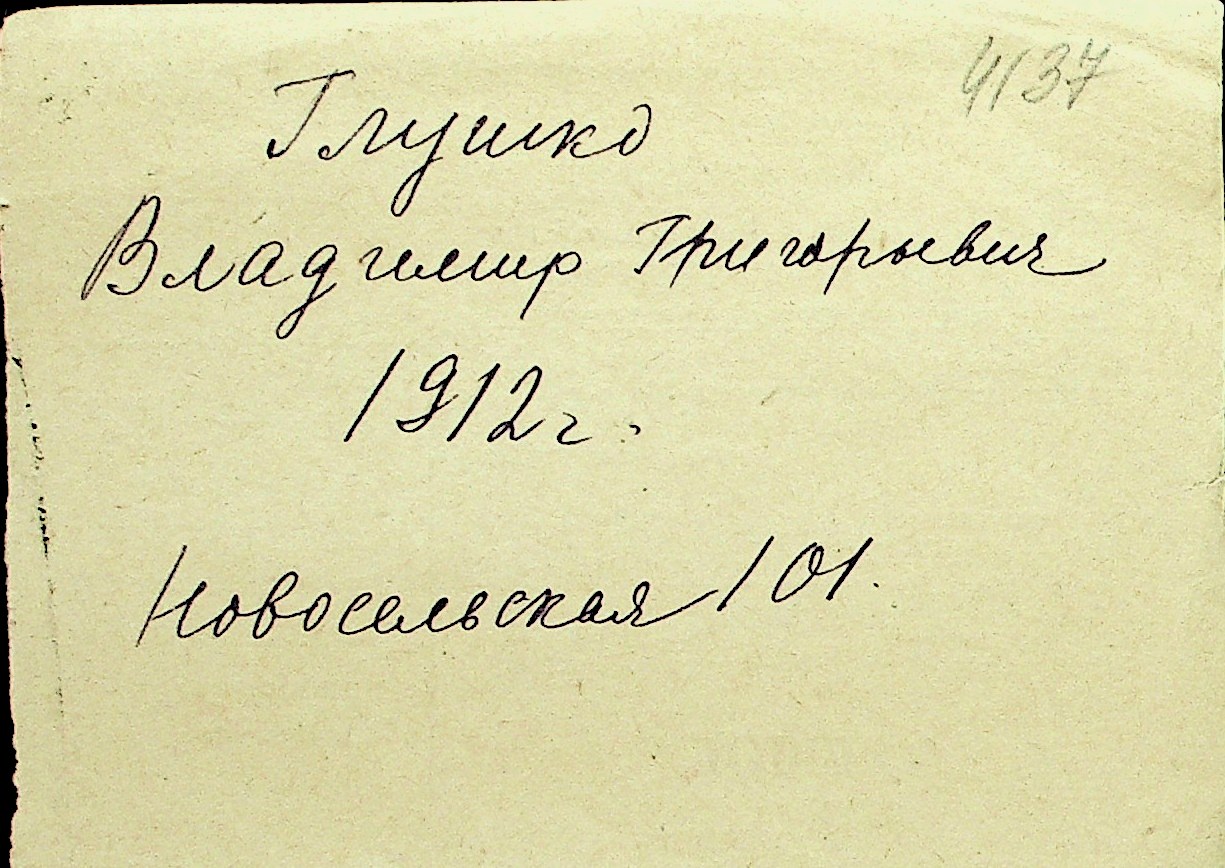 4137
Глушко
Владимир Григорьевич
1912 г.
Новосельская 101.